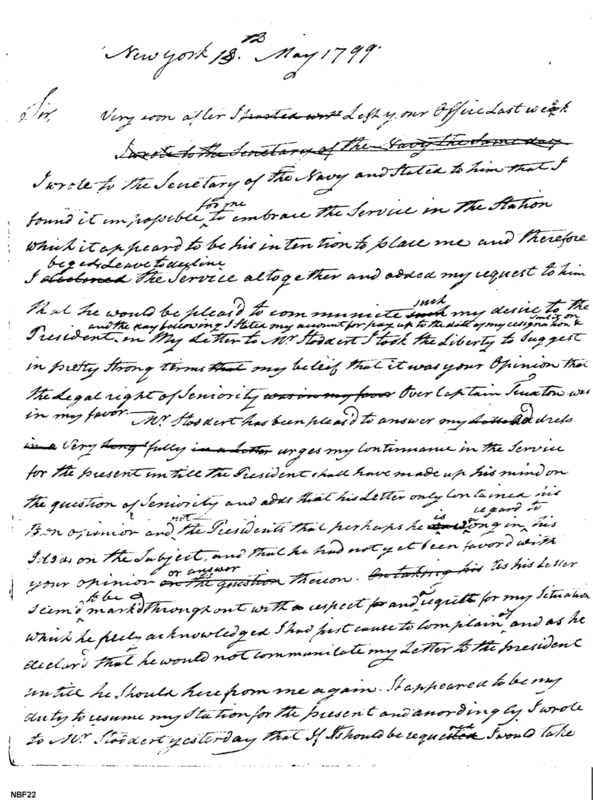 New York 18.th May 1799.
Sir, Very soon after I trusted wrote Left your Office Last week
I wrote to the Secretary of the Navy the same day
I wrote to the Secretary of the Navy and Stated to him that I
for me
found it impossible to embrace the Service in the Station
which it appeard to be his intention to place me and therefore
beged Leave to decline
I declined the Service altogether and added my request to him
such
that he would be pleas'd to communicate such my desire to the
and the day following I Stated my account for pay up to the date of my resignation &
President. in My Letter to Mr Stoddert I took the Liberty to Suggest
in pretty Strong terms that my belief that it was your Opinion that
the Legal right of Seniority was in my favor Over Captain Truxton was
in my favor. Mr Stoddert has been pleas'd to answer my Letter Address
in a very long fully in a Letter urges my continuance in the Service
for the present untill the President shall have made up his mind on
the question of Seniority and adds that his Letter only contained his
not is regard to
own opinion and the Presidents that perhaps he wrong in his
Ideas on the Subject, and that he had not yet been favor'd with
or answer
your opinion on the question thereon. On taking his As his Letter
to be
Seem'd mark'd throughout with a respect for and regrett for my Situation
of
which he freely acknowledged I had just cause to complain and as he
declar'd that he would not communicate my Letter to the president
untill he Should here from me again. It appeared to be my
duty to resume my Station for the present and accordingly I wrote
to Mr Stoddert yesterday that If I should be requested I would take
NBF22